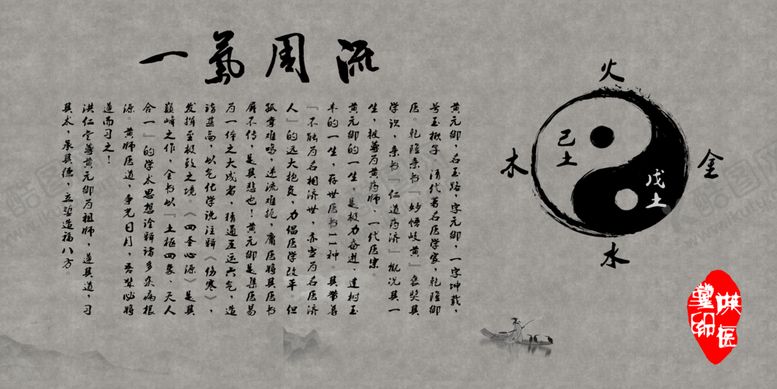 一氣周流
黄元御,名玉路,字元御,一字坤载,
号玉楸子,清代著名医学家,乾隆御
医。乾隆亲书“妙悟岐黄”褒奖其
学识,亲书“仁道药济”概况其一
生,被誉为黄药师、一代医宗。
黄元御的一生,是极力奋进、建树至
丰的一生,存世医书十一种,其带着
“不能为名相济世,亦当为名医济
人”的远大抱负,力倡医学改革,但
孤掌难鸣,逆流难抗,庸医将其医书
屏不传,是其悲也!黄元御是集医易
为一体之大成者,精通五运六气,造
诣甚高,以气化学说注解《伤寒》,
发挥至极致之境《四圣心源》是其
巅峰之作,全书以“土枢四象、天人
合一”的学术思想诠释诸多杂病根
源。黄师医道,争光日月,吾辈必将
追而习之!
洪仁堂尊黄元御为祖师,道其道,习
其太,展其德,立誓造福八方。
火
木
己土
戊土
金
水
洪医
堂印